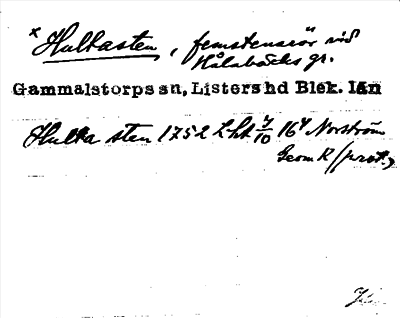 x Hulkasten, femstenarör vid
Hålabäcks gr.
Gammalstorps sn, Listers hd Blek. län
Hulka sten 1752 Lht 7/10 16 4 Norström
Geom K (prot.)